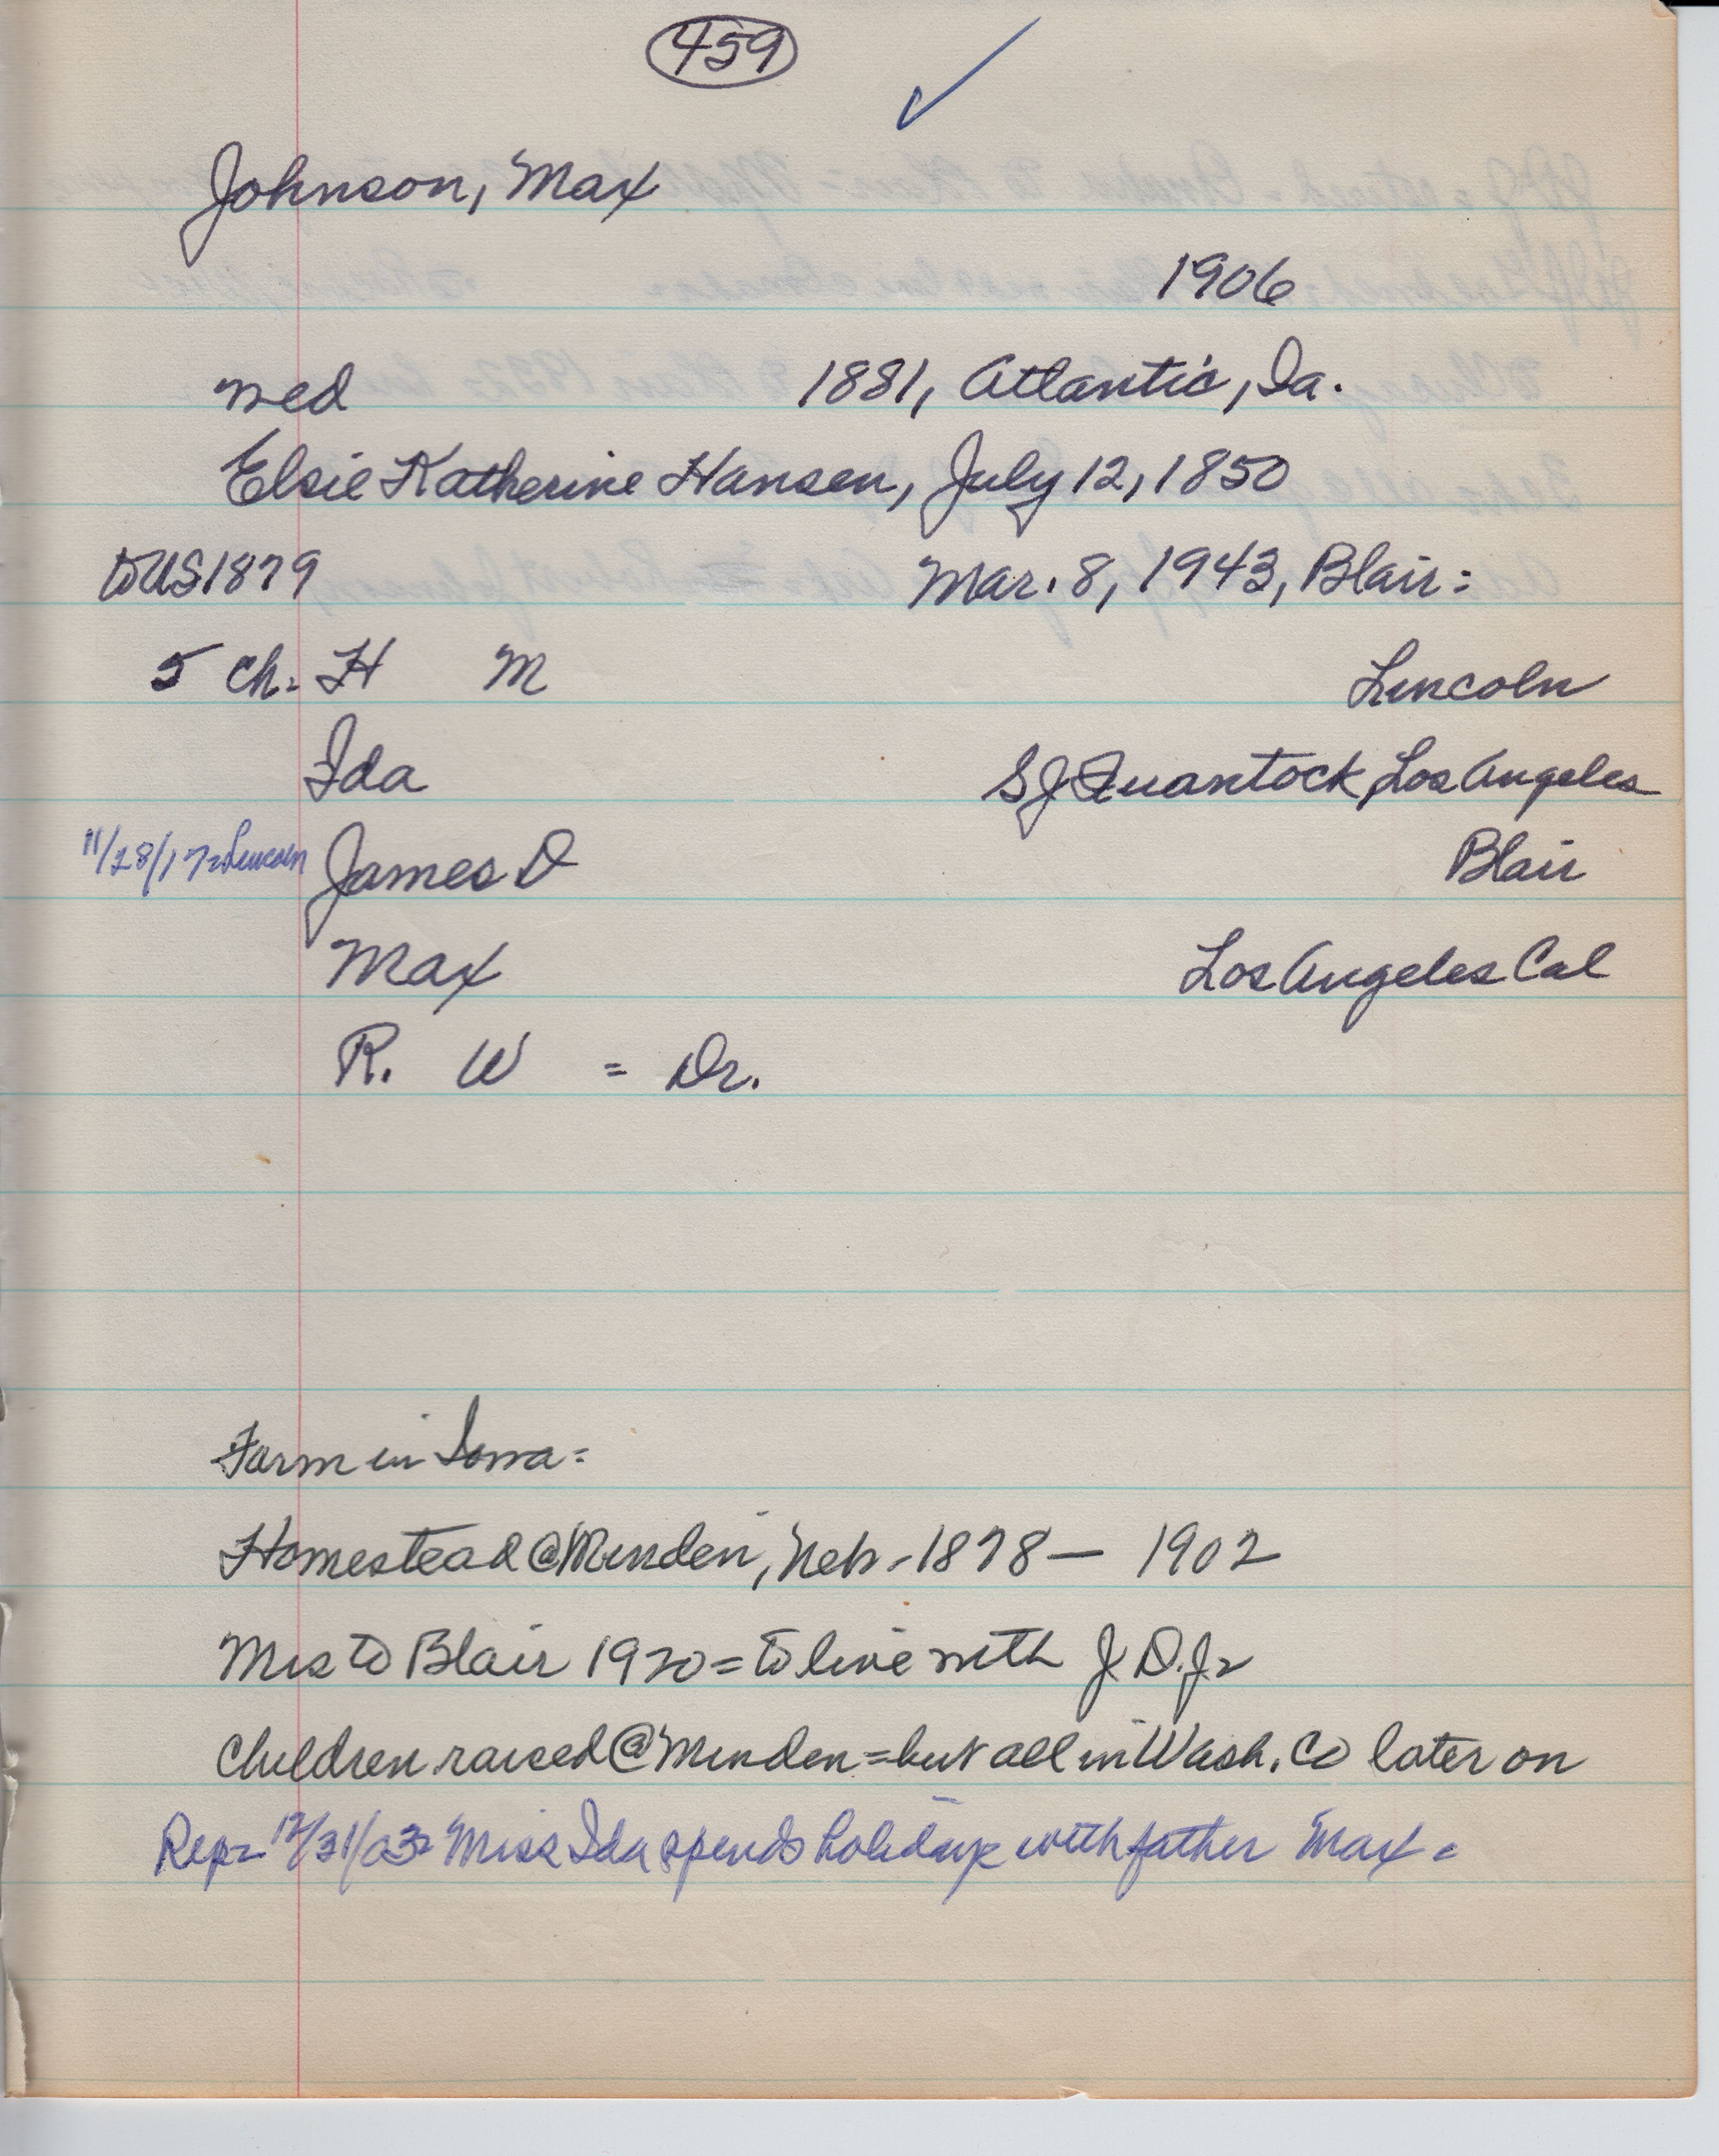 459
Johnson, Max
1906
wed 1881, Atlantic, Ia.
Elsie Katherine Hansen, July 12, 1850
to US 1879 Mar. 8, 1943, Blair =
5 ch. = H M Lincoln
Ida S J Quantock, Los Angeles
11/28/17 = Lincoln James D Blair
Max Los Angeles Cal
R. W = Dr.
Farm in Iowa =
Homestead @ Minden, Neb - 1878 — 1902
Mrs to Blair 1920 = to live with J. D. Jr
Children raised @ Minden = but all in Wash. Co later on
Rep = 12/31/03 = Miss Ida spends holidays with father Max =